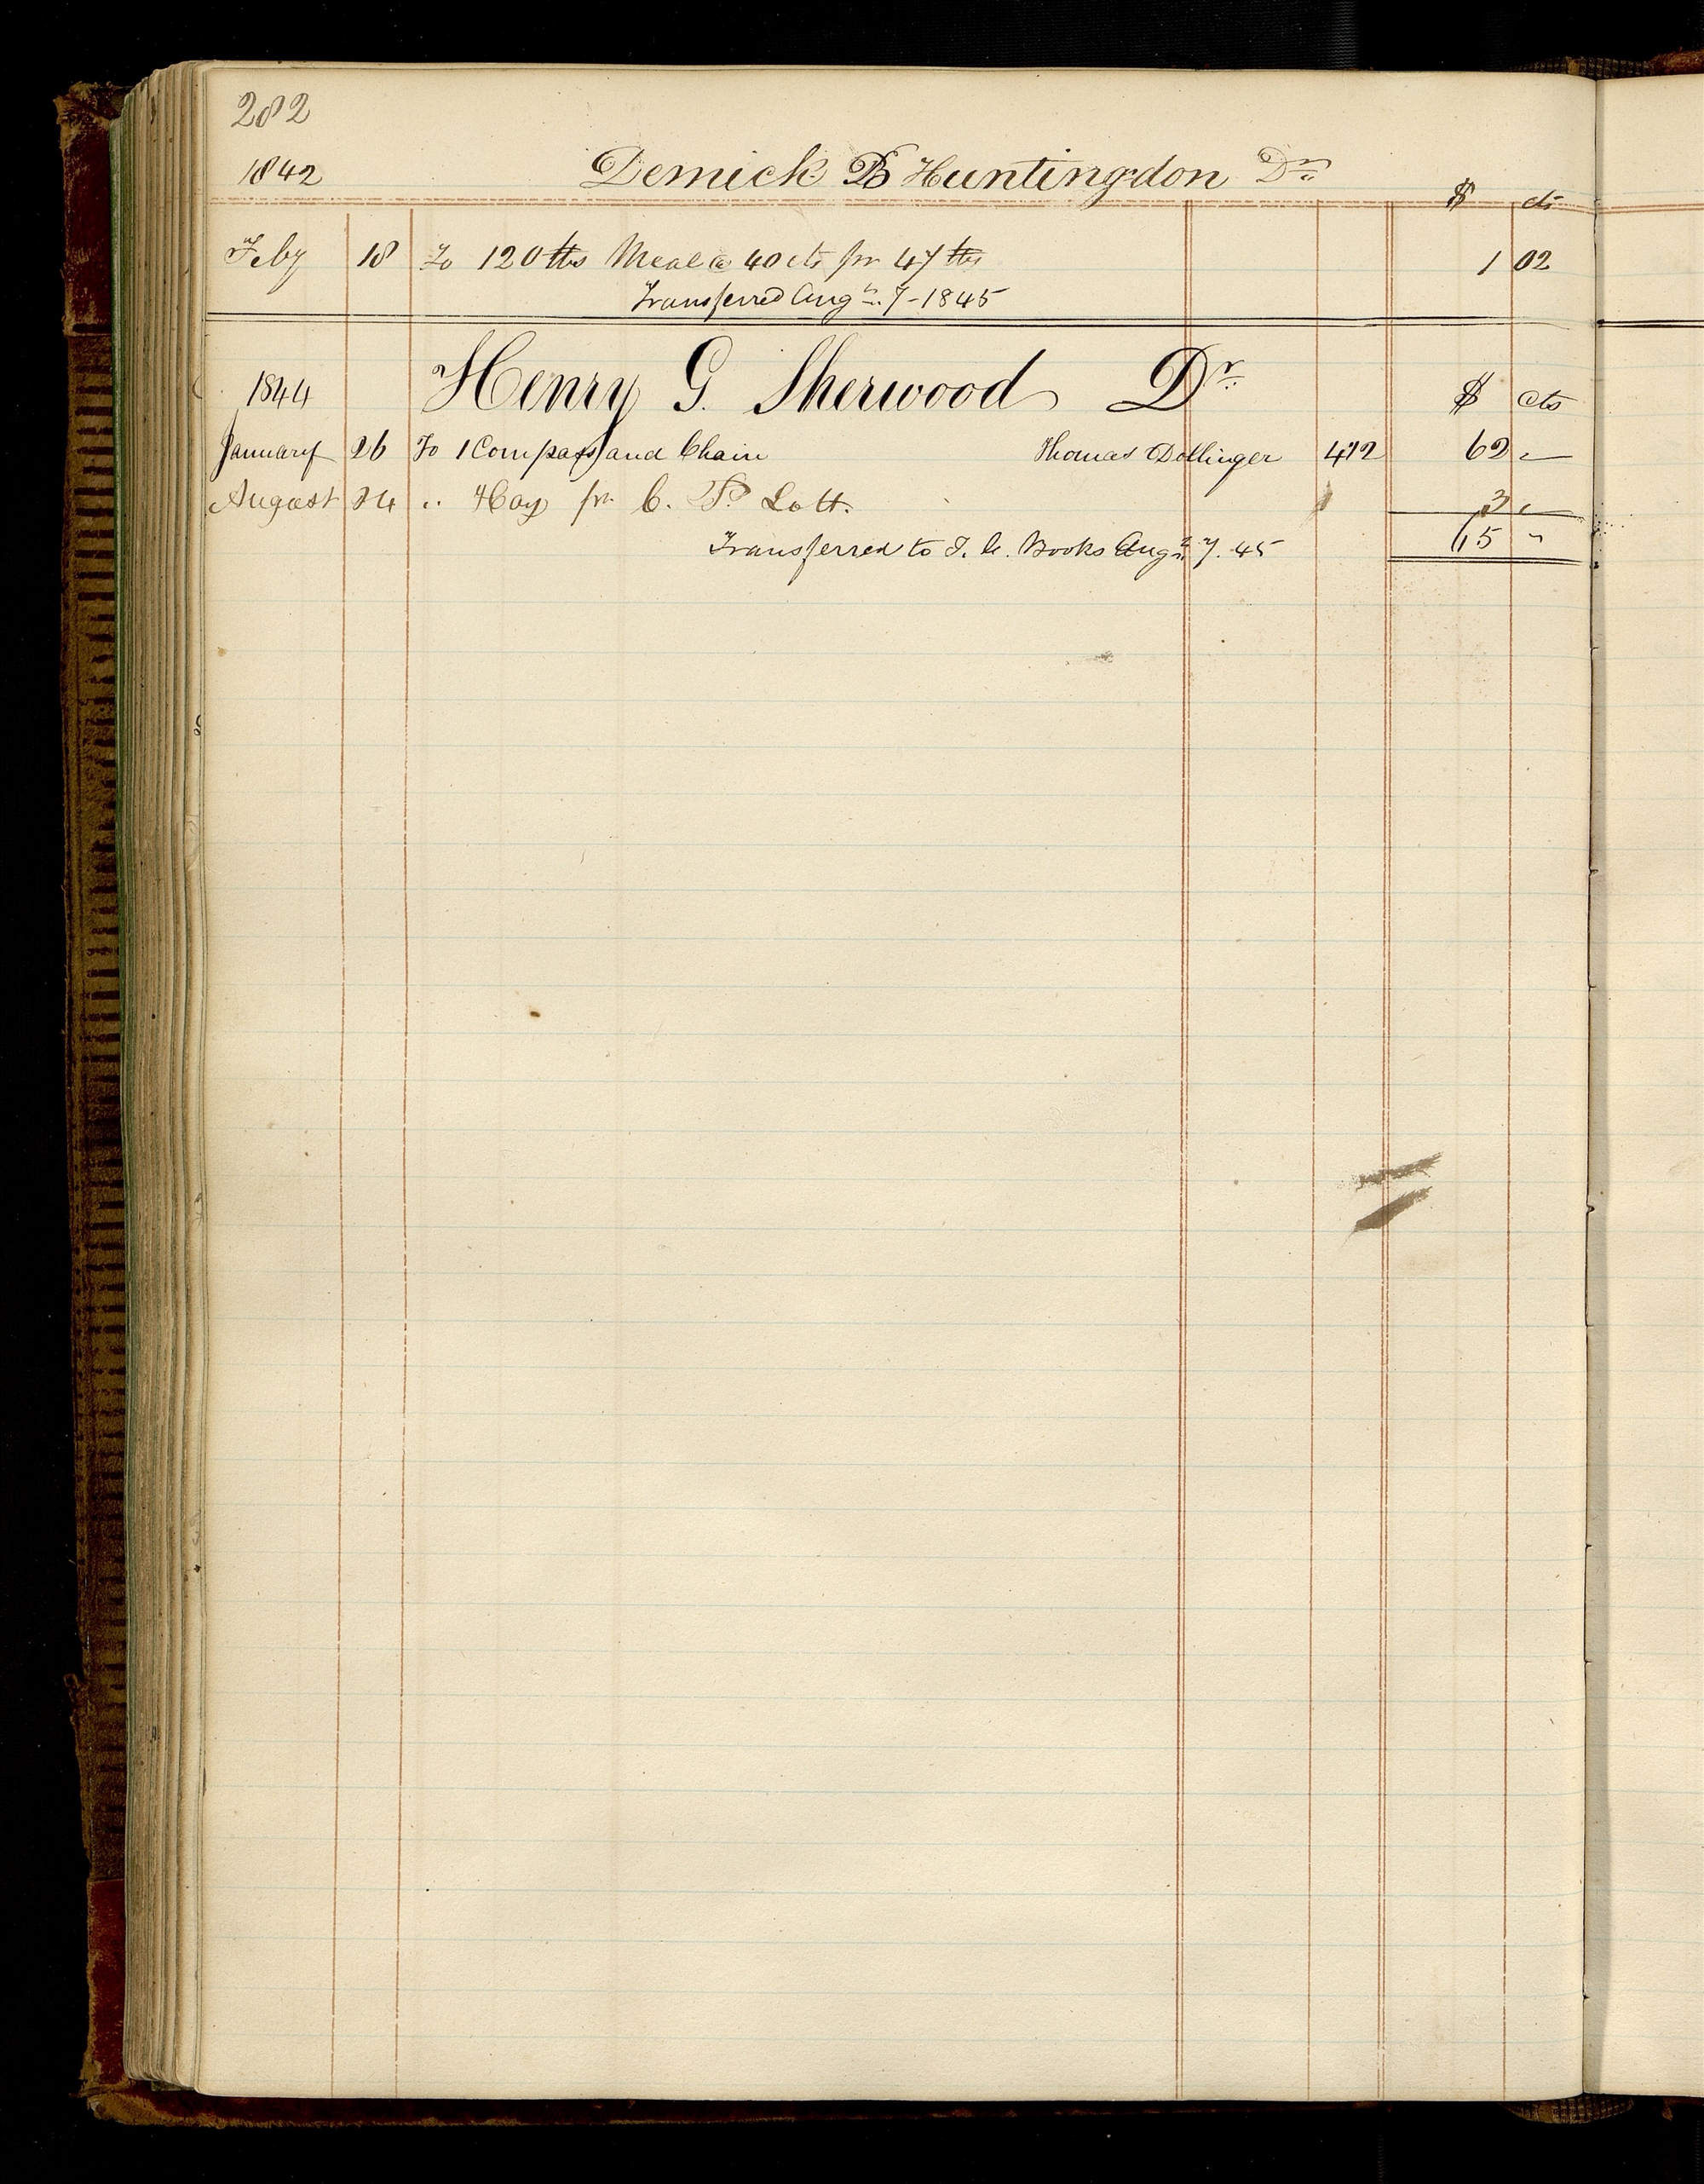 282
1842 Demick B Huntingdon Dr.
$ cts
Feby 18 To 120 lbs Meal @ 40 cts pr 47 lbs 1 02
Transferred Augt. 7-1845
1844 Henry G. Sherwood Dr. $ cts
January 26 To 1 Compass and Chain Thomas Dollinger 412 62 "
August 24 " Hay pr C. P. Lott. 3 "
Transferred to T. C. Books Augt. 7. 45 65 "